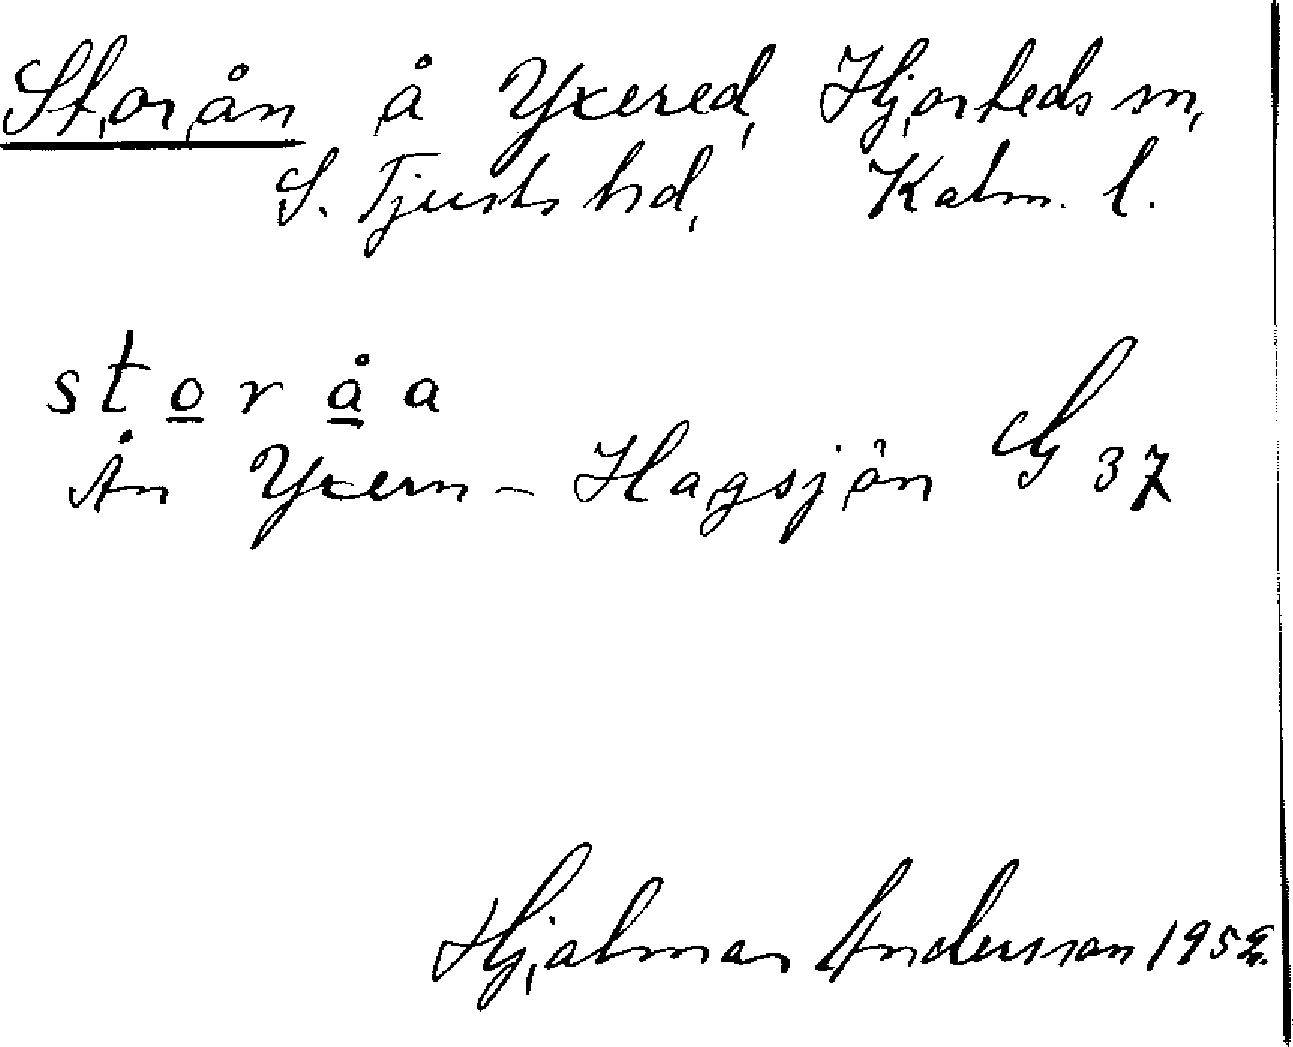 Storån å Yxered, Hjorteds sn,
S. Tjusts hd, Kalm. l.
storåa
Ån Yxern - Hagsjön G 37
Hjalmar Andersson 1952.